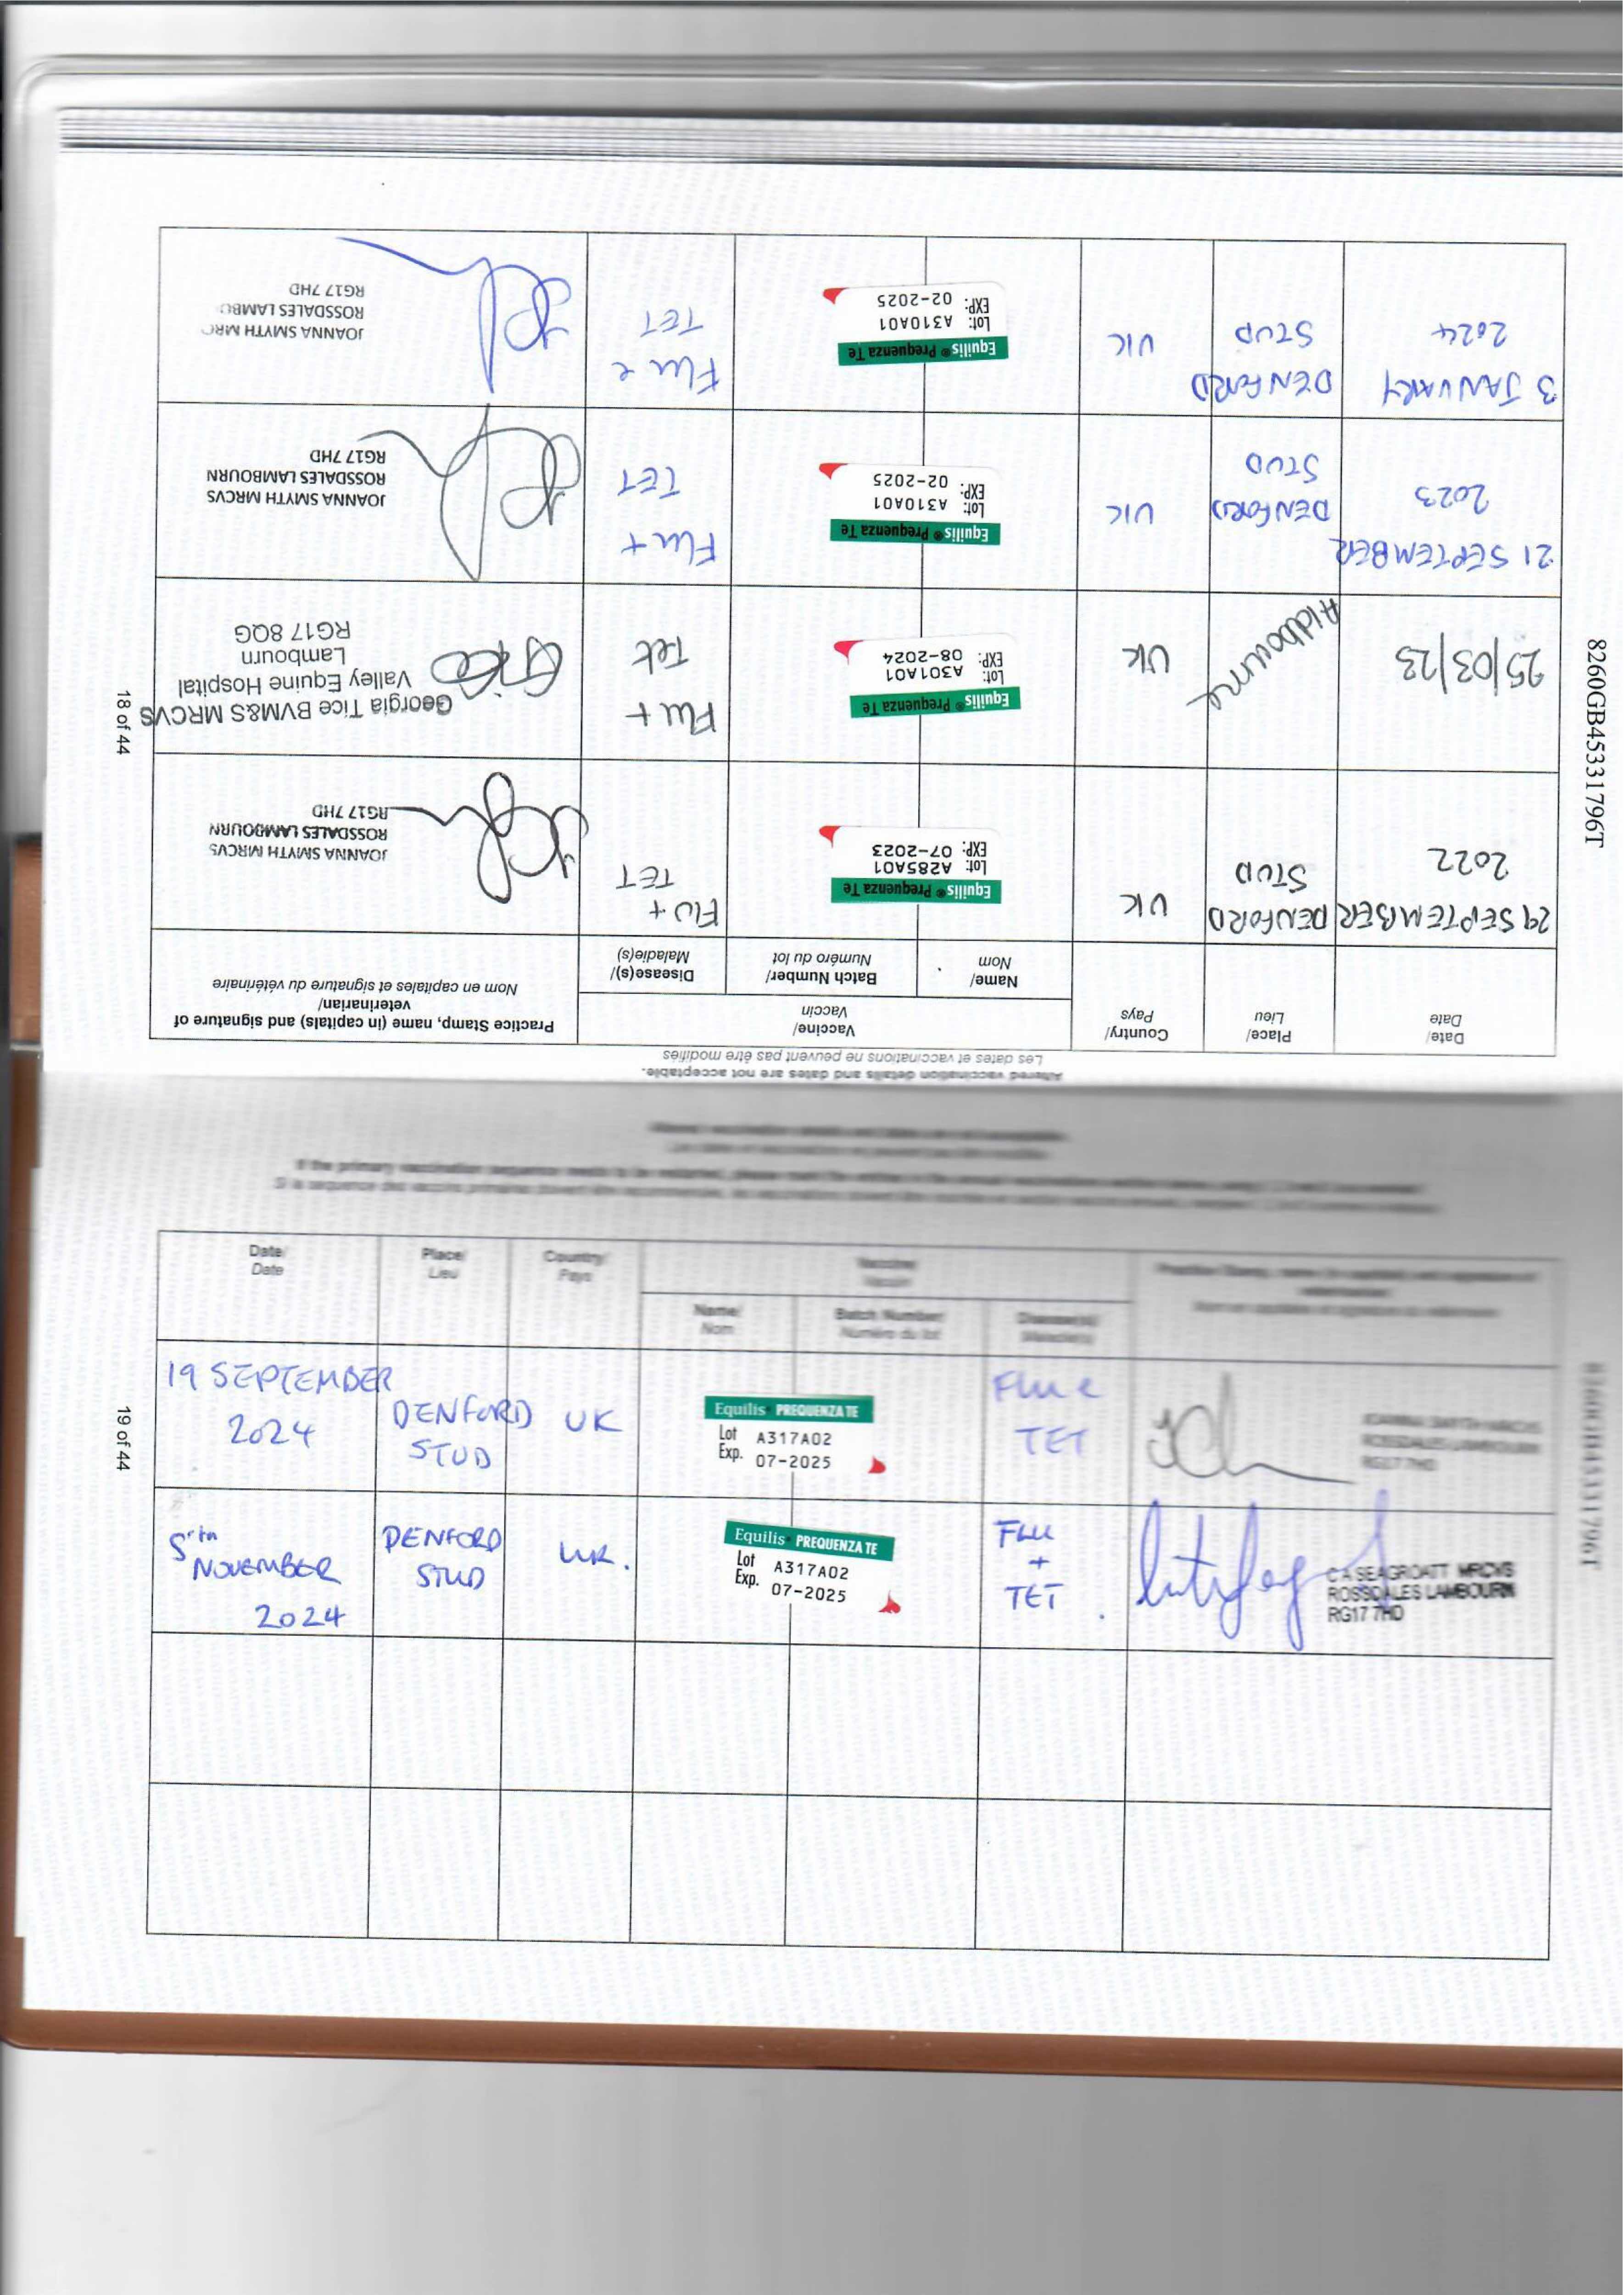 8260GB45331796T
Altered vaccination details and dates are not acceptable.
Les dates et vaccinations ne peuvent pas être modifiés
Date/
Date
Place/
Lieu
Country/
Pays
Vaccine/
Vaccin
Name/
Nom
Batch Number/
Numéro du lot
Disease(s)/
Maladie(s)
Practice Stamp, name (in capitals) and signature of
veterinarian/
Nom en capitales et signature du vétérinaire
29 SEPTEMBER
2022
DENFORD
STUD
UK
Equilis® Prequenza Te
Lot: A285A01
EXP: 07-2023
FLU +
TET
JOANNA SMYTH MRCVS
ROSSDALES LAMBOURN
RG17 7HD
25/03/23
Aldbourne
UK
Equilis® Prequenza Te
Lot: A301A01
EXP: 08-2024
Flu +
Tet
Georgia Tice BVM&S MRCVS
Valley Equine Hospital
Lambourn
RG17 8QG
21 SEPTEMBER
2023
DENFORD
STUD
UK
Equilis® Prequenza Te
Lot: A310A01
EXP: 02-2025
Flu +
TET
JOANNA SMYTH MRCVS
ROSSDALES LAMBOURN
RG17 7HD
3 JANUARY
2024
DENFORD
STUD
UK
Equilis® Prequenza Te
Lot: A310A01
EXP: 02-2025
Flu e
TET
JOANNA SMYTH MRC
ROSSDALES LAMBO
RG17 7HD
18 of 44
Altered vaccination details and dates are not acceptable.
Les dates et vaccinations ne peuvent pas être modifiés
If the primary vaccination sequence needs to be restarted, please mark the entries in the annual vaccinations
Date/
Date
Place/
Lieu
Country/
Pays
Vaccine/
Vaccin
Name/
Nom
Batch Number/
Numéro du lot
Disease(s)/
Maladie(s)
Practice Stamp, name (in capitals) and signature of
veterinarian/
Nom en capitales et signature du vétérinaire
19 SEPTEMBER
2024
DENFORD
STUD
UK
Equilis® PREQUENZA TE
Lot A317A02
Exp. 07-2025
Flu e
TET
JOANNA SMYTH MRCVS
ROSSDALES LAMBOURN
RG17 7HD
5th
NOVEMBER
2024
DENFORD
STUD
UK.
Equilis® PREQUENZA TE
Lot A317A02
Exp. 07-2025
FLU
+
TET
C A SEAGROATT MRCVS
ROSSDALES LAMBOURN
RG17 7HD
8260GB45331796T
19 of 44